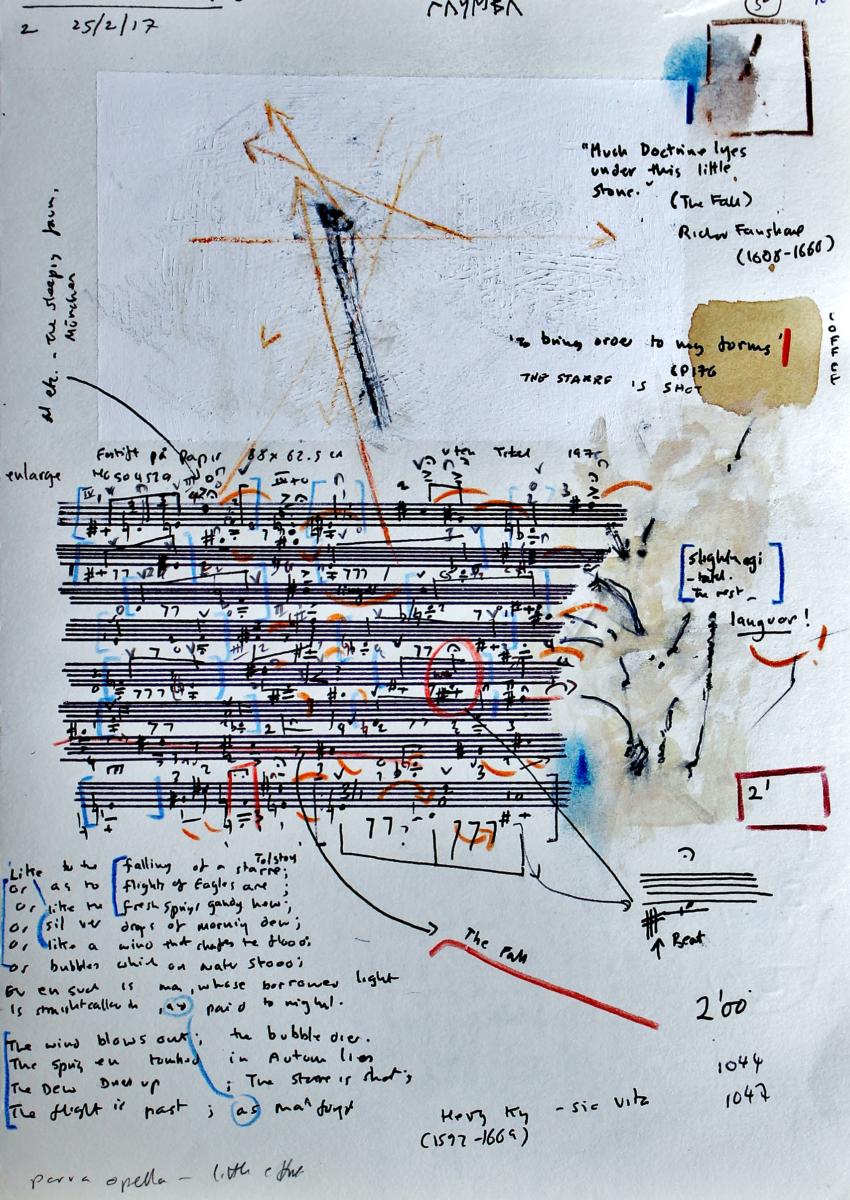 2 25/2/17
"Much Doctrine lyes
under this little
stone."
(The Fall)
Richar Fanshawe
(1608-1666)
al etc. - The sleeping faun,
München
COFFEE
'To bring order to my forms'
THE STARRE IS SHOT
enlarge
på Papir 88 x 62.5 cm uten Titel 197
slightly agi
-tated.
The rest
languor!
2'
Tolstoy
Like to the falling of a starre;
Or as to flights of Eagles are;
Or like the fresh springs gaudy how;
Or silver drops of morning dew;
Or like a wind that chafes the flood;
Or bubbles which on water stood;
Ev en such is man, whose borrowed light
Is straight called in, and paid to night.
The wind blows out; the bubble dies.
The Spring en tombed in Autum lies
The Dew Dried up; The starre is shot;
The flight is past; as man forgot
The Fall
Beat
2'00
1044
1047
Henry King - sic vita
(1592-1669)
parva opella - little